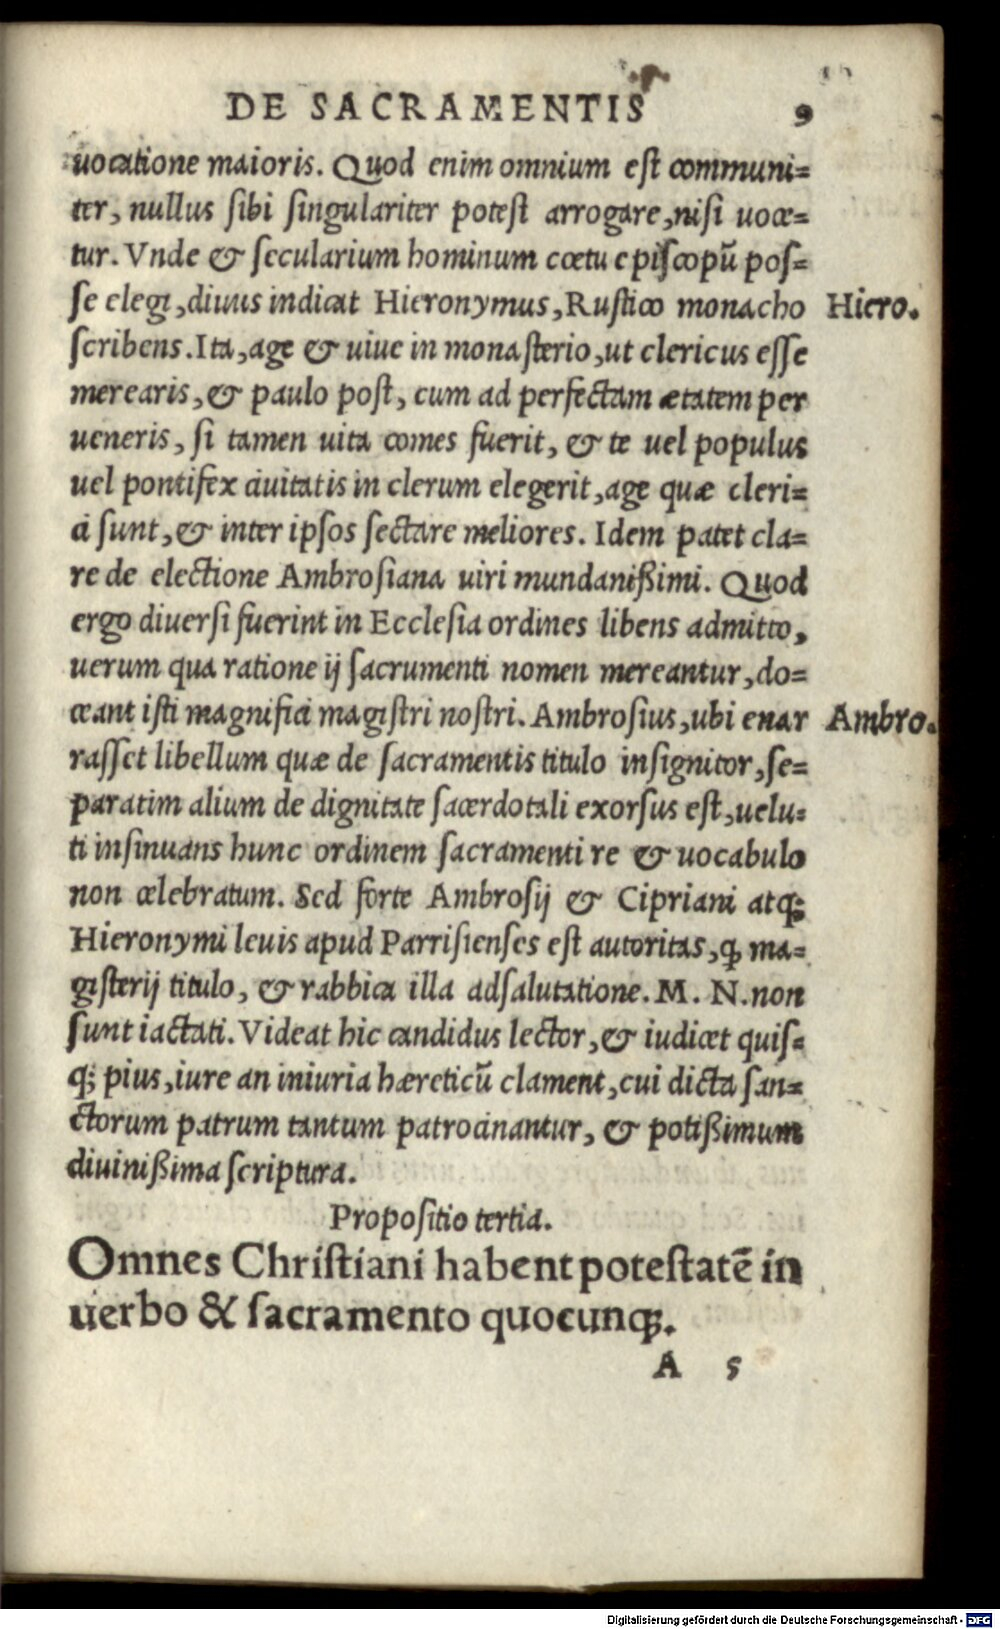 DE SACRAMENTIS 9
uocatione maioris. Quod enim omnium est communi=
ter, nullus sibi singulariter potest arrogare, nisi uoce=
tur. Vnde & secularium hominum cœtu episcopū pos=
se elegi, diuus indicat Hieronymus, Rustico monacho Hiero.
scribens. Ita, age & uiue in monasterio, ut clericus esse
merearis, & paulo post, cum ad perfectam ætatem per
ueneris, si tamen uita comes fuerit, & te uel populus
uel pontifex ciuitatis in clerum elegerit, age quæ cleri=
ci sunt, & inter ipsos sectare meliores. Idem patet cla=
re de electione Ambrosiana uiri mundanißimi. Quod
ergo diuersi fuerint in Ecclesia ordines libens admitto,
uerum qua ratione ij sacrumenti nomen mereantur, do=
ceant isti magnifici magistri nostri. Ambrosius, ubi enar Ambro.
rasset libellum quæ de sacramentis titulo insignitor, se=
paratim alium de dignitate sacerdotali exorsus est, uelu=
ti insinuans hunc ordinem sacramenti re & uocabulo
non celebratum. Sed forte Ambrosij & Cipriani atq;
Hieronymi leuis apud Parrisienses est autoritas, ꝙ ma=
gisterij titulo, & rabbica illa adsalutatione. M. N. non
sunt iactati. Videat hic candidus lector, & iudicet quis=
q; pius, iure an iniuria hæreticū clament, cui dicta san=
ctorum patrum tantum patrocinantur, & potißimum
diuinißima scriptura.
Propositio tertia.
Omnes Christiani habent potestatē in
uerbo & sacramento quocunq;.
A 5
Digitalisierung gefördert durch die Deutsche Forschungsgemeinschaft - DFG